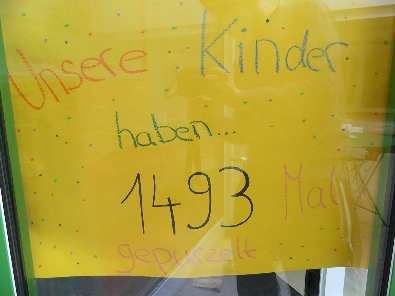 Unsere Kinder
haben...
1493 Mal
gepurzelt